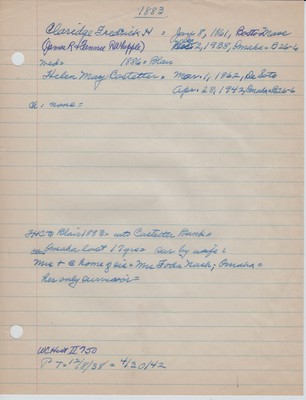 1883
Claridge Fredrick H = June 8, 1861, Boston Mass
(James R + Fannie DeWapple) 2, 1938, Omaha = B26-6
wed = 1886 = Blair
Helen May Castetter = Mar. 1, 1862, DeSoto
Apr. 28, 1942, Omaha = B26-6
Ch: none =
FHC to Blair 1883 = into Castetter Bank =
Omaha last 17 yrs = sur by wife =
Mrs + C home = Mrs Nash, Omaha =
her only survivor =
WCHist II 750
P T = 12/8/38 = 4/30/42